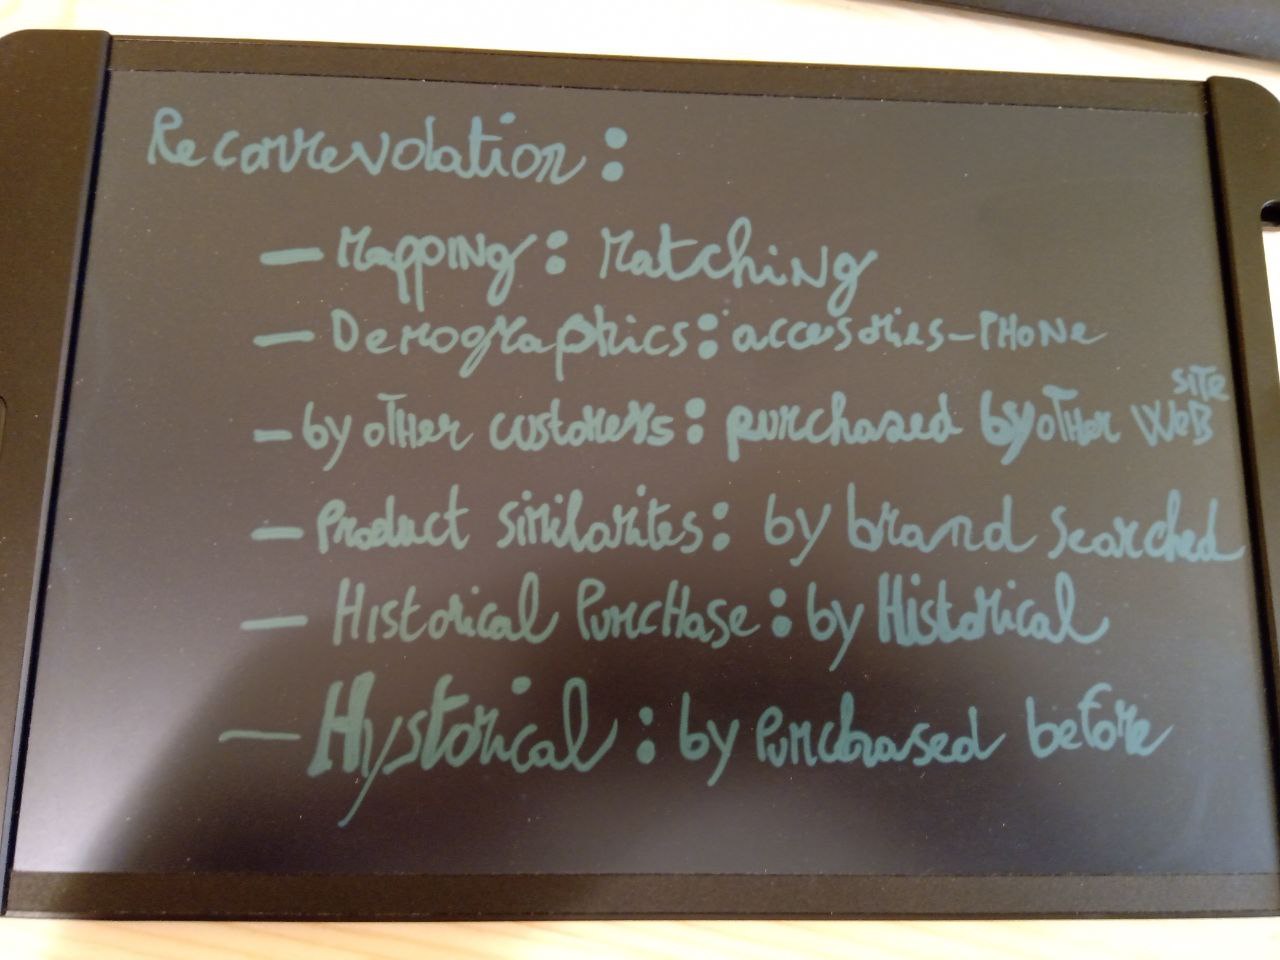 Recomrevolation:
— Mapping: Matching
— Demographics: accessories-PHONE
— by oTHer customers: purchased by oTHer WeB SiTe
— Product similarites: by brand searched
— Historical PurcHase: by Historical
— Hystorical: by Purchased before